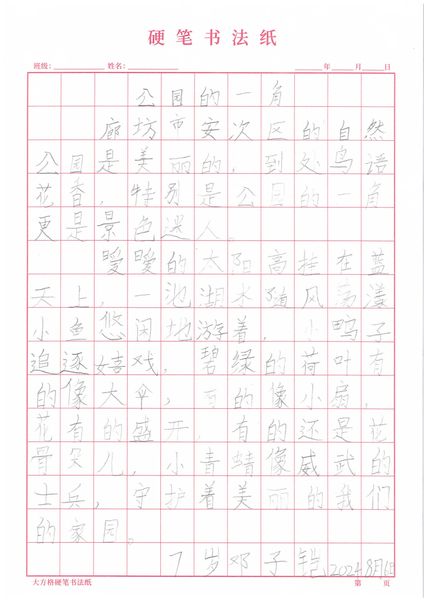 硬笔书法纸
班级: 姓名: 年 月 日
公园的一角
廊坊市安次区的自然
公园是美丽的,到处鸟语
花香,特别是公园的一角
更是景色迷人。
暧暧的太阳高挂在蓝
天上,一池湖水随风荡漾
小鱼悠闲地游着,小鸭子
追逐嬉戏,碧绿的荷叶有
的像大伞,有的像小扇,
花有的盛开,有的还是花
骨朵儿,小青蜻像威武的
士兵,守护着美丽的我们
的家园。
7岁邓子铠
大方格硬笔书法纸 第 页